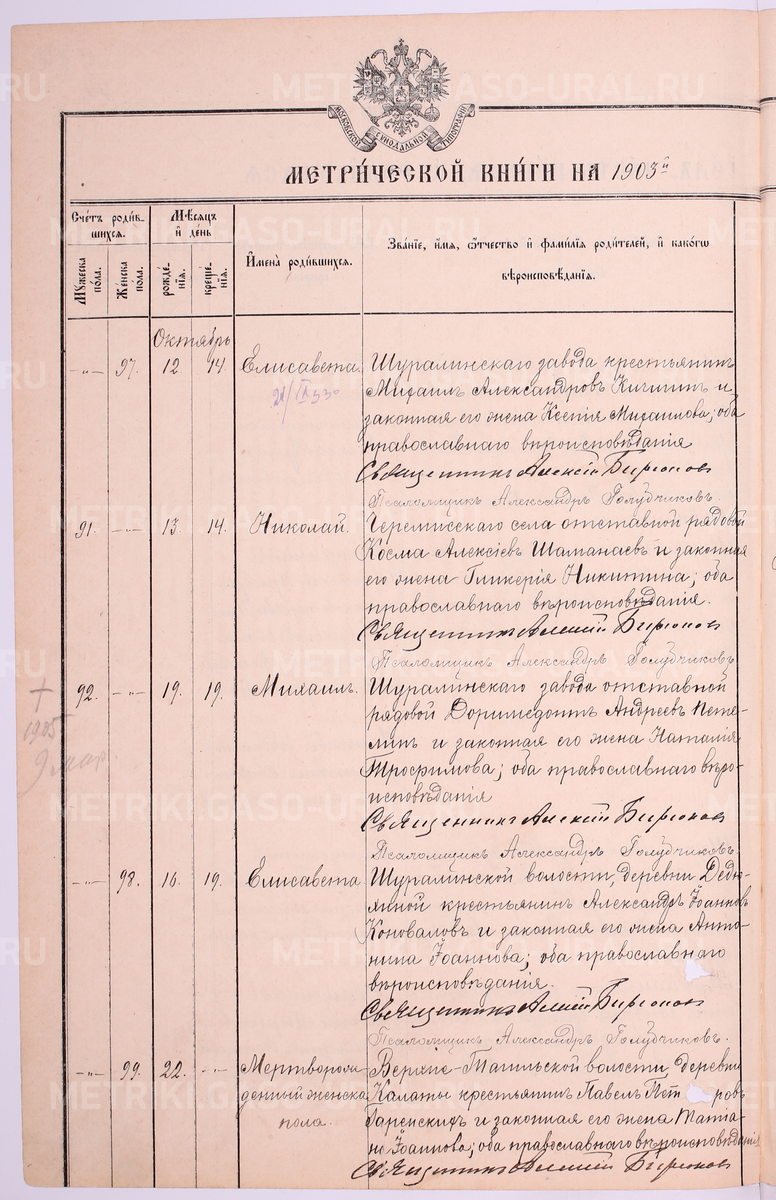 МОСКОВСКОЙ СѴНОДАЛЬНОЙ ТИПОГРАФІИ
МЕТРИ́ЧЕСКОЙ КНИ́ГИ НА 1903й
Сче́тъ роди́в-
шихся.
Мꙋ́жеска по́ла.
Же́нска по́ла.
Мѣ́сяцъ
и҆ де́нь
рожде́-
нїѧ.
креще́-
нїѧ.
И҆мена̀ роди́вшихся.
Зва́нїе, и҆́мѧ, ѻ҆́тчество и҆ фамилїѧ роди́телей, и҆ како́гѡ
вѣроисповѣ́данїѧ.
Октябрь
-"- 97. 12 14 Елисавета. Шуралинскаго завода крестьянинъ
21/IX 930 Михаилъ Александровъ Кичигинъ и
законная его жена Ксенія Михаилова; оба
православнаго вѣроисповѣданія
Священникъ Алексій Бирюков
Псаломщикъ Александръ Голубчиковъ.
91. -"- 13. 14. Николай. Черемисскаго села отставной рядовой
Косма Алексіевъ Шаманаевъ и законная
его жена Гликерія Никитина; оба
православнаго вѣроисповѣданія.
Священникъ Алексій Бирюков
Псаломщикъ Александръ Голубчиковъ
92. -"- 19. 19. Михаилъ. Шуралинскаго завода отставной
† 1905 9 мар рядовой Доримедонтъ Андреевъ Пете-
линъ и законная его жена Наталія
Трофимова; оба православнаго вѣро-
исповѣданія
Священникъ Алексій Бирюков
Псаломщикъ Александръ Голубчиковъ
-"- 98. 16. 19. Елисавета Шуралинской волости, деревни Дедю-
хиной крестьянин Александръ Іоанновъ
Коноваловъ и законная его жена Анто-
нина Іоаннова; оба православнаго
вѣроисповѣданія.
Священникъ Алексій Бирюков
Псаломщикъ Александръ Голубчиковъ.
-"- 99. 22. -"- Мертворож- Верхне-Тагильской волости, деревни
денный женска Калаты крестьянинъ Павелъ Пет ровъ
пола. Гаренскихъ и законная его жена Татіа-
на Іоаннова; оба православнаго вѣроисповѣданія
Священникъ Алексій Бирюков
METRIKI.GASO-URAL.RU